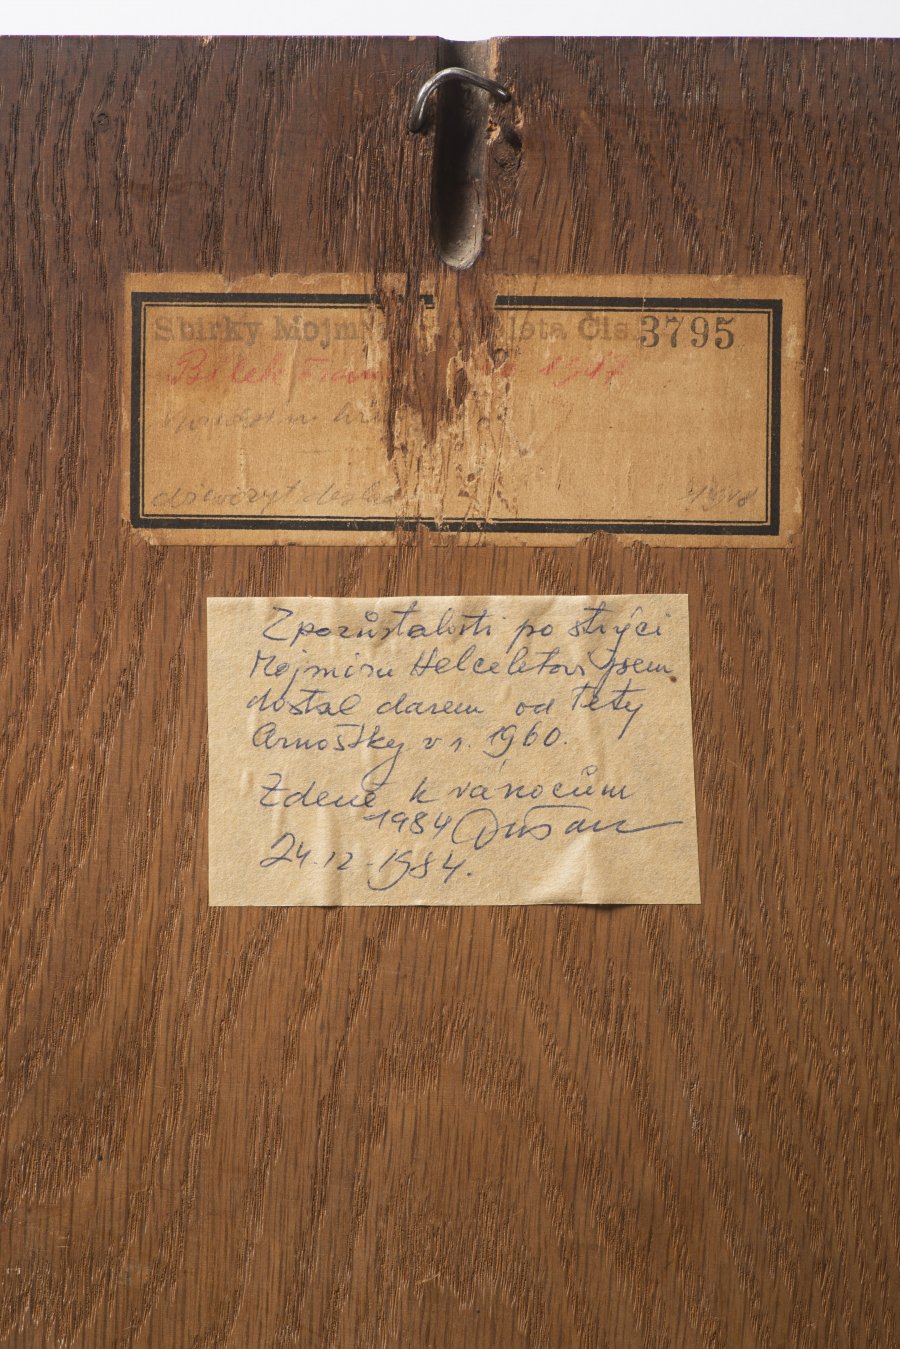 Sbírky Mojm lleta Čís. 3795
Bílek Fran
dřevoryt deska
Z pozůstalosti po strýci
Mojmíru Helceletovi jsem
dostal darem od tety
Arnoštky v r. 1960.
Zdeně k vánocům
1984 Dušan
24.12.1984.